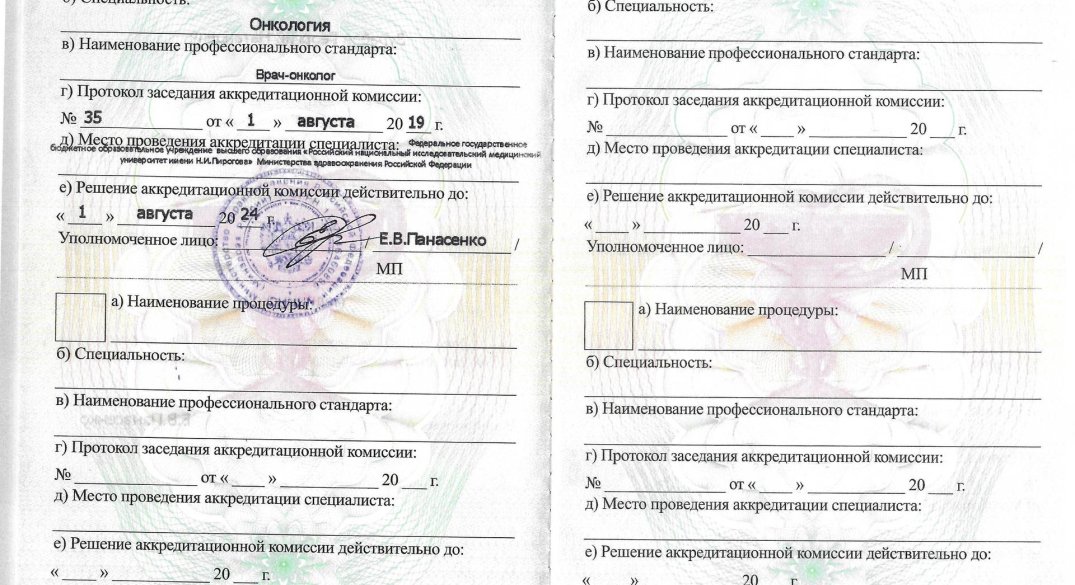 б) Специальность:
Онкология
в) Наименование профессионального стандарта:
Врач-онколог
г) Протокол заседания аккредитационной комиссии:
№ 35 от « 1 » августа 20 19 г.
д) Место проведения аккредитации специалиста: Федеральное государственное
бюджетное образовательное учреждение высшего образования «Российский национальный исследовательский медицинский
университет имени Н.И.Пирогова» Министерства здравоохранения Российской Федерации
е) Решение аккредитационной комиссии действительно до:
« 1 » августа 20 24 г.
Уполномоченное лицо: / Е.В.Панасенко /
МП
а) Наименование процедуры:
б) Специальность:
в) Наименование профессионального стандарта:
г) Протокол заседания аккредитационной комиссии:
№ от « » 20 г.
д) Место проведения аккредитации специалиста:
е) Решение аккредитационной комиссии действительно до:
« » 20 г.
б) Специальность:
в) Наименование профессионального стандарта:
г) Протокол заседания аккредитационной комиссии:
№ от « » 20 г.
д) Место проведения аккредитации специалиста:
е) Решение аккредитационной комиссии действительно до:
« » 20 г.
Уполномоченное лицо: / /
МП
а) Наименование процедуры:
б) Специальность:
в) Наименование профессионального стандарта:
г) Протокол заседания аккредитационной комиссии:
№ от « » 20 г.
д) Место проведения аккредитации специалиста:
е) Решение аккредитационной комиссии действительно до:
« » 20 г.